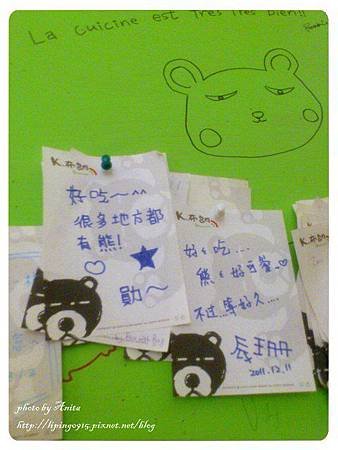 La cuicine est Tres Tres bien!!
K.布朗
好吃～^^
很多地方都
有熊!
勛～
K.布朗
好好吃...
熊熊好可愛
不過...等好久...
2011.12.11
photo by Anita
http://liping0915.pixnet.net/blog